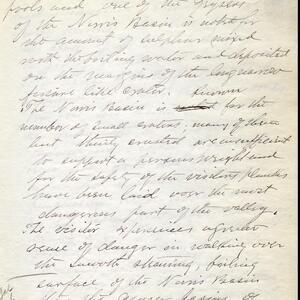 pools and one of the Geysers
of the Norris Basin is noted for
the amount of sulphur mixed
with the boiling water and deposited
on the margins of the long narrow
fissure like crater. known
The Norris Basin is for the
number of small craters, many of them
but thinly crusted are insufficient
to support a persons weight and
for the safety of the visitors planks
have been laid over the most
dangerous part of the valley.
The visitor experiences a greater
sense of danger in walking over
the smooth steaming, boiling
surface of the Norris Basin
than the geyser basins of